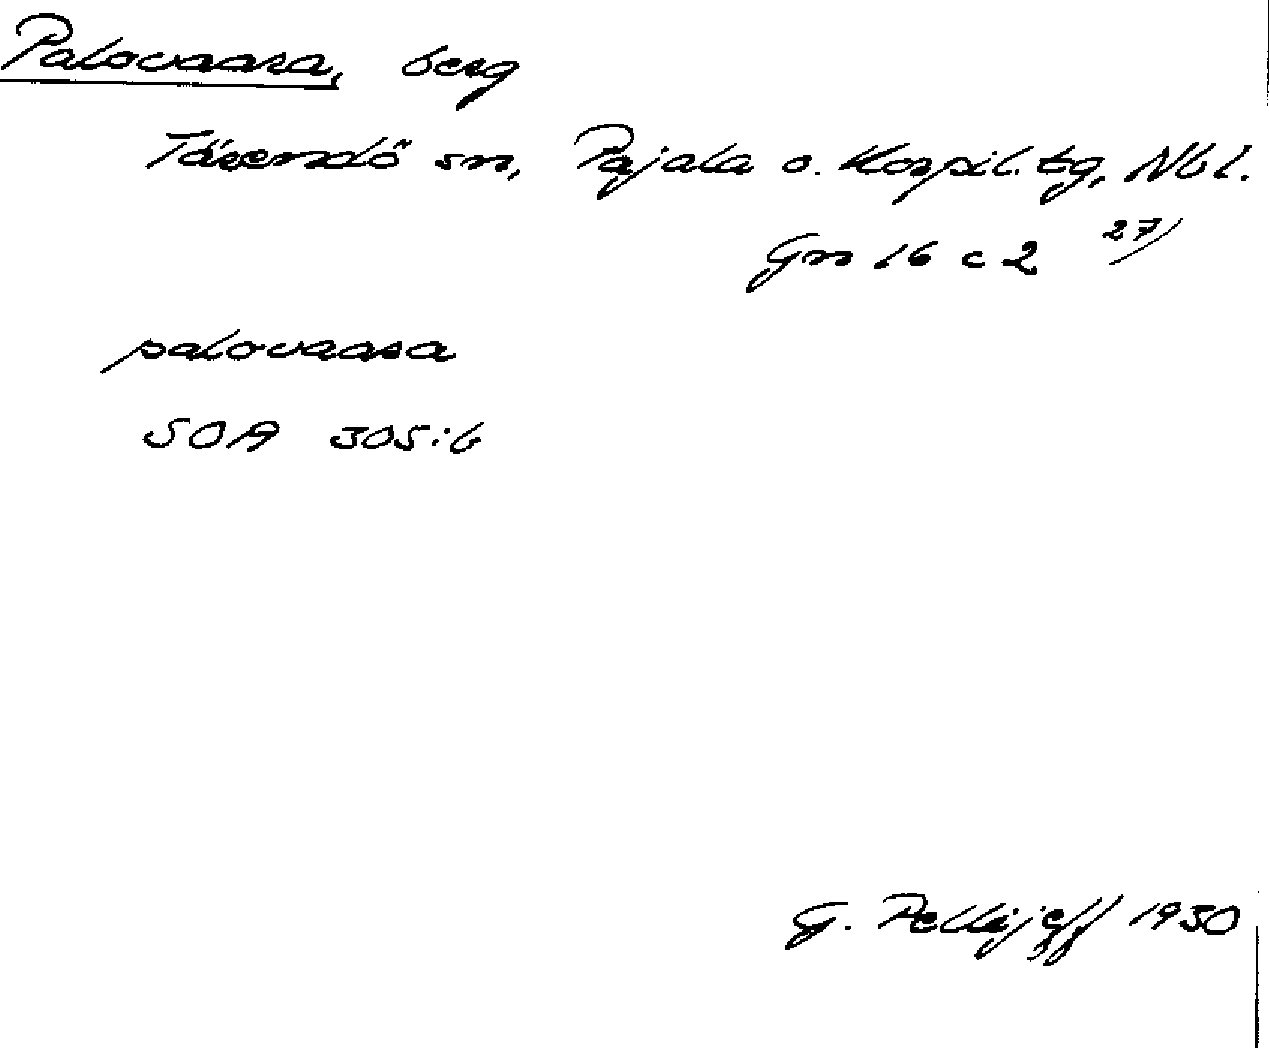 Palovaara, berg
Tärendö sn, Pajala o. Korpil. tg, Nbl.
Gn 16 c 2 27/
palovaara
SOA 305:6
G. Pellijeff 1950